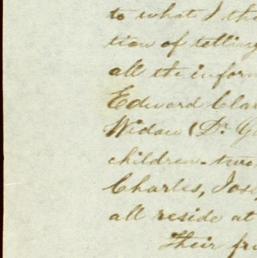 to what I tho
tion of telling
all the inform
Edward Clar
Widow (Dr. Y
children - two
Charles, Jose
all reside at
Their fr